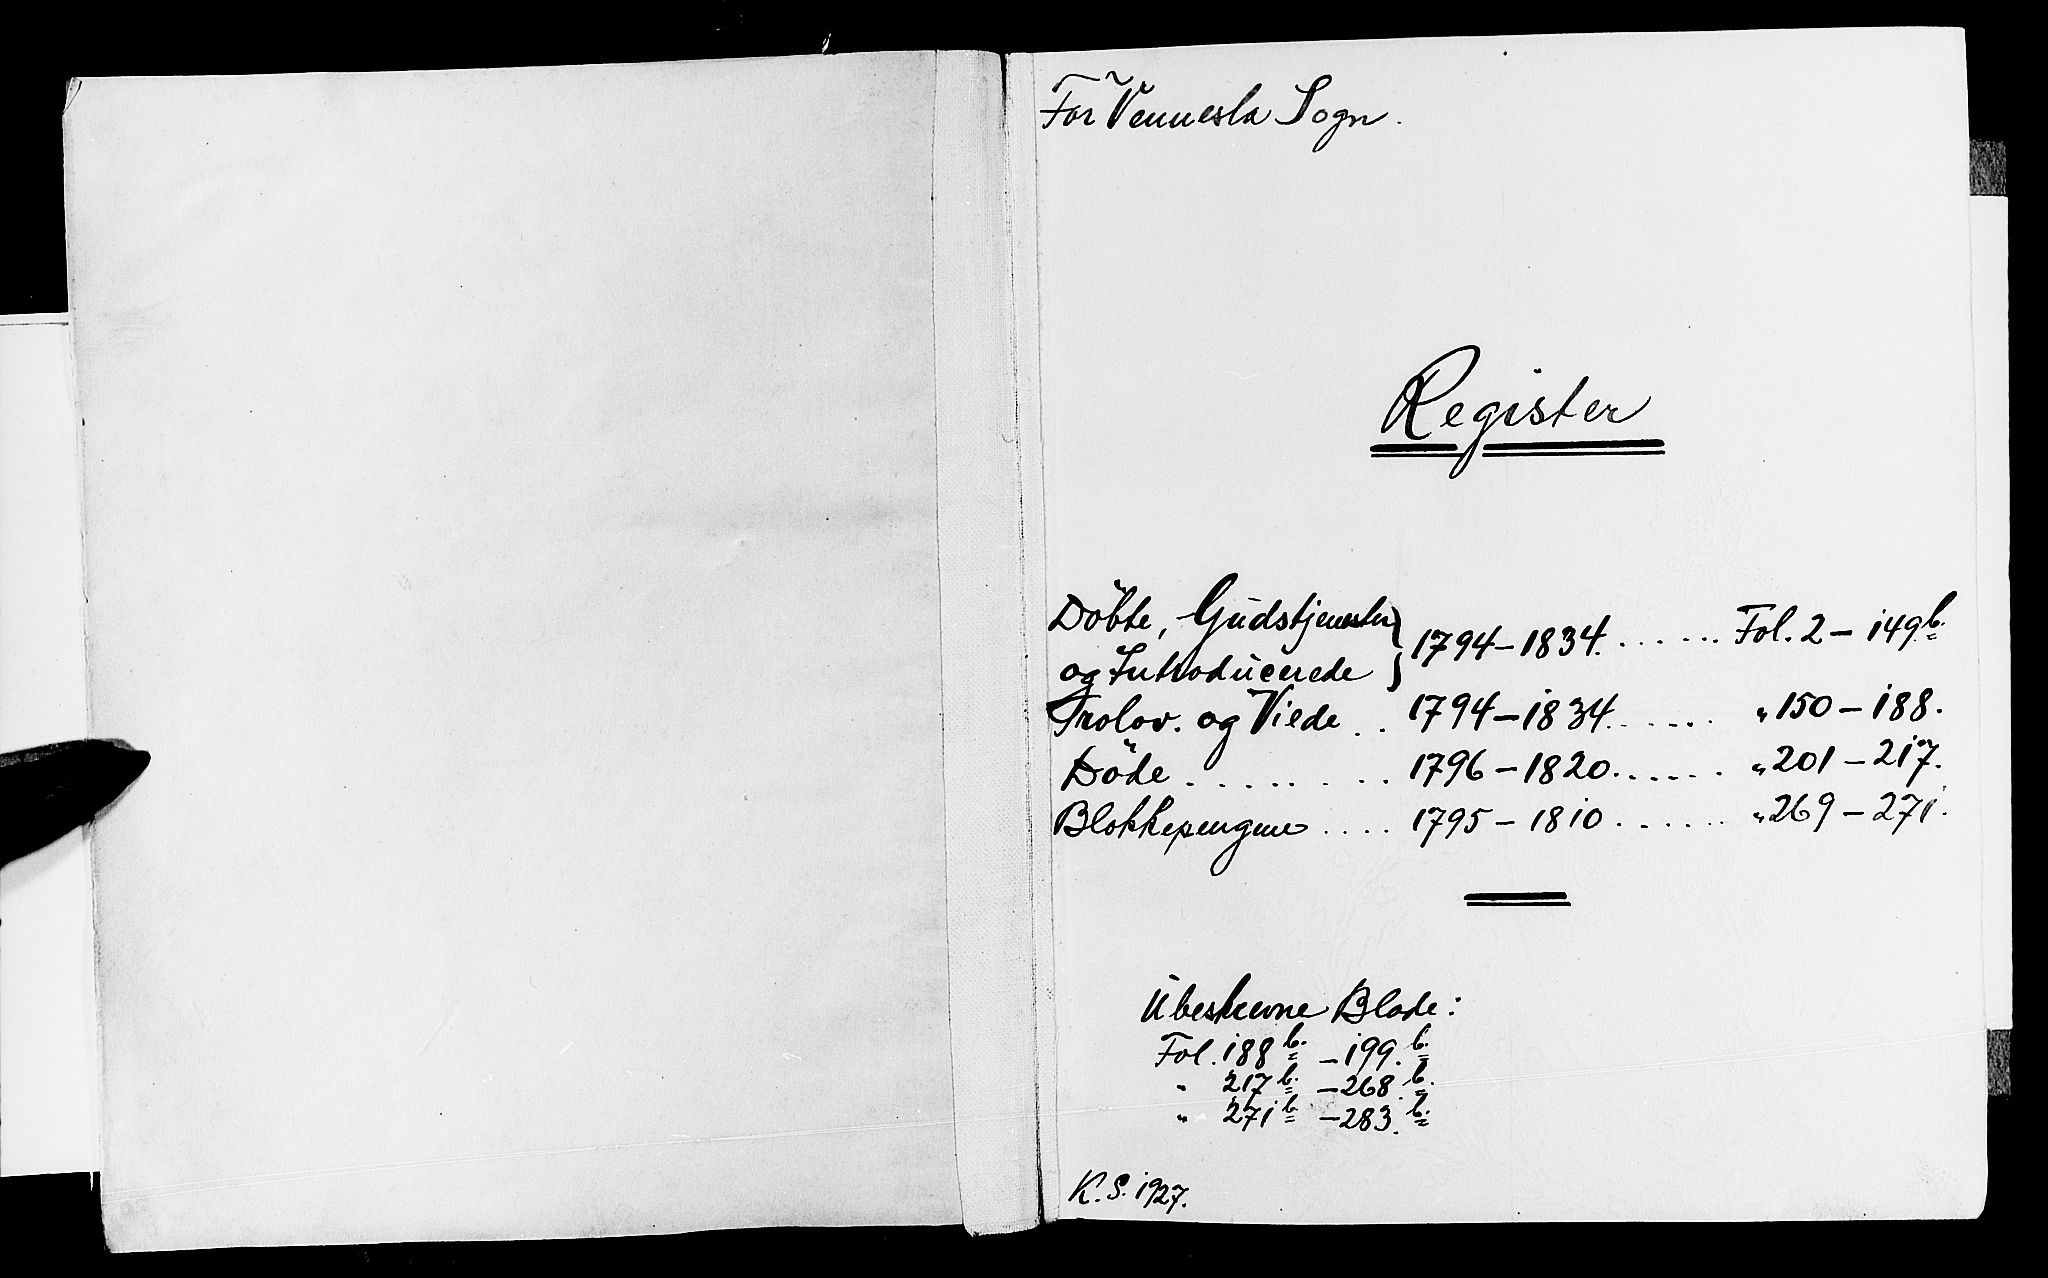 For Vennesla Sogn.
Register
Döbte, Gudstjenester
og Introducerede } 1794-1834. ...... Fol. 2 - 149 b.
Trolov. og Viede . . 1794-1834. ...... „ 150 - 188.
Döde . . . . . . . . . 1796 - 1820. ...... „ 201 - 217.
Blokkepengene .... 1795 - 1810. ...... „ 269 - 271.
Ubeskrevne Blade:
Fol. 188 b. - 199. b.
„ 217 b. - 268 b.
„ 271 b. - 283. b.
K. S. 1927.